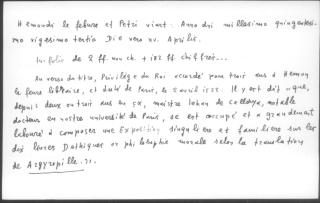 Hemundi le febure et Petri viart. Anno dni millesimo quingentesi-
mo vigesimo tertio Die vero xv. Aprilis.
In-folio de 2 ff. non ch. + 182 ff chiffrés...
Au verso du titre, Privilège du Roi accordé pour trois ans à Hemon
le fevre libraire, et daté de Paris, le 2 avril 1522. Il y est dit "que,
depuis deux ou trois ans en ça, maistre Jehan de notable
docteur en nostre université de Paris, se est occupé et a grandement
labouré à composer une Exposition singuliere et familiere sur les
dix livres Dethiques or philosophie morale selon la translation
de Argyropille.".